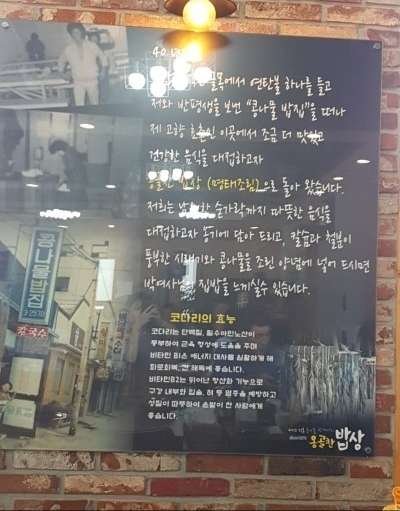 골목에서 연탄불 하나를 들고
저와 반평생을 보낸 "콩나물 밥집"을 떠나
제 고향 이곳에서 조금 더 맛있고
건강한 음식을 대접하고자
밥상 (명태조림)으로 돌아 왔습니다.
저희는 숟가락까지 따뜻한 음식을
대접하고자 옹기에 담아 드리고, 칼슘과 철분이
풍부한 시래기와 콩나물을 조린 양념에 넣어 드시면
집밥을 느끼실수 있습니다.
코다리의 효능
코다리는 단백질, 필수아미노산이
풍부하여 근육 형성에 도움을 주며
비타민 비슨 에너지 대사를 원활하게 해
피로회복, 간 해독에 좋습니다.
비타민B2는 뛰어난 항산화 기능으로
구강 내부와 입술, 혀 등 염증을 예방하고
성질이 따뜻하여 손발이 찬 사람에게
좋습니다.
콩나물밥집
칼국수
옹골찬 밥상